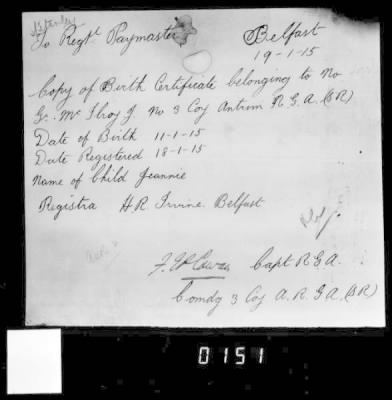 To Regtl Paymaster
Belfast
19-1-15
Copy of Birth Certificate belonging to No
Gr. Mc Ilroy J. No 3 Coy Antrim R G A. (SR)
Date of Birth 11-1-15
Date Registered 18-1-15
Name of Child Jeannie
Registra H.R. Irvine Belfast
Capt R G A.
Comdg 3 Coy A. R. G A. (SR)
0151